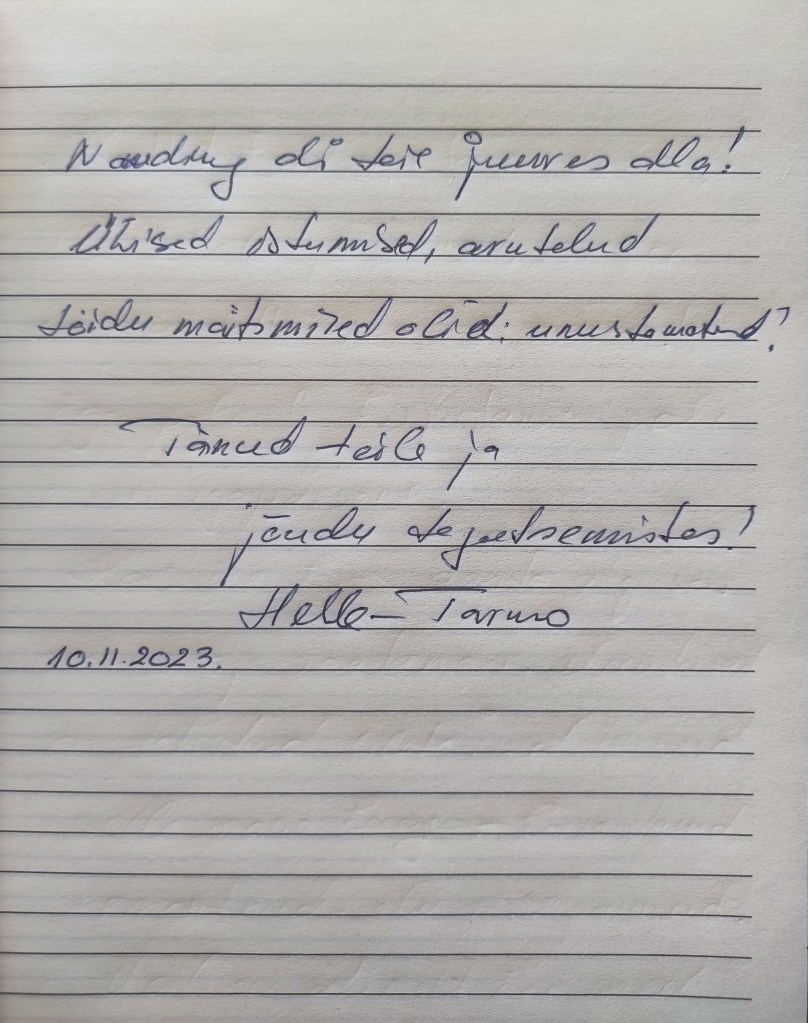 Nauding oli teie juures olla!
Ühised istumised, arutelud
toidu maitsmised olid unustamatud!
Tänud teile ja
jõudu tegutsemistes!
Helle-Tarmo
10.11.2023.